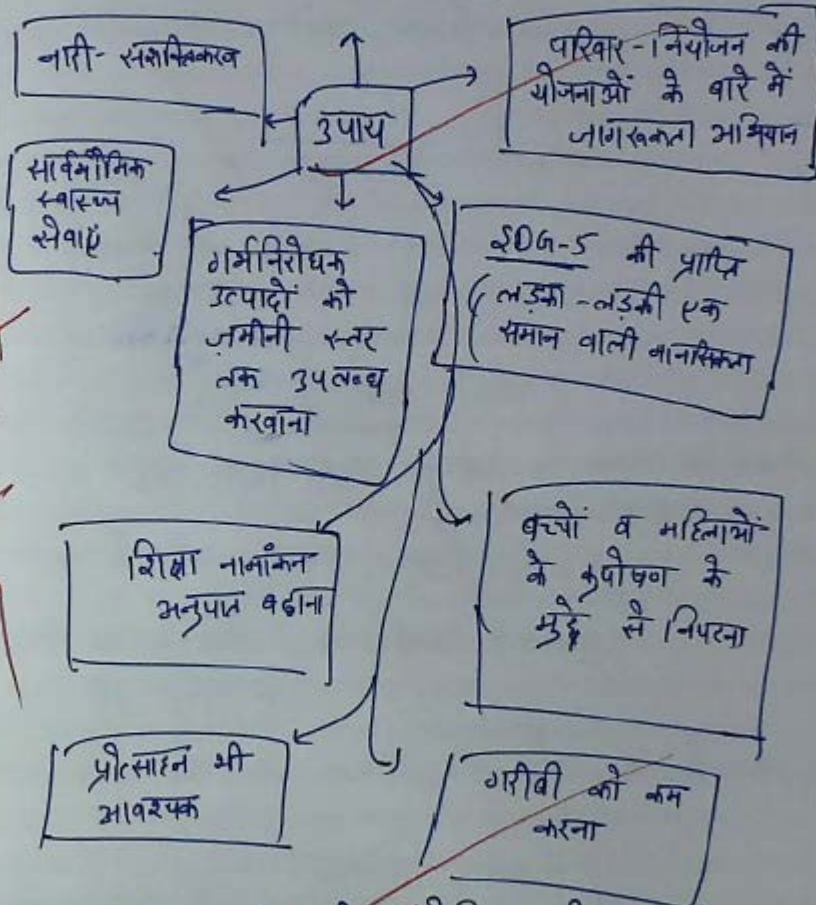 नारी-सशक्तिकरण
उपाय
परिवार-नियोजन की
योजनाओं के बारे में
जागरूकता अभियान
सार्वभौमिक
स्वास्थ्य
सेवाएँ
गर्भनिरोधक
उत्पादों को
ज़मीनी स्तर
तक उपलब्ध
करवाना
SDG-5 की प्राप्ति
(लड़का-लड़की एक
समान वाली मानसिकता
शिक्षा नामांकन
अनुपात बढ़ाना
बच्चों व महिलाओं
के कुपोषण के
मुद्दे से निपटना
प्रोत्साहन भी
आवश्यक
गरीबी को कम
करना